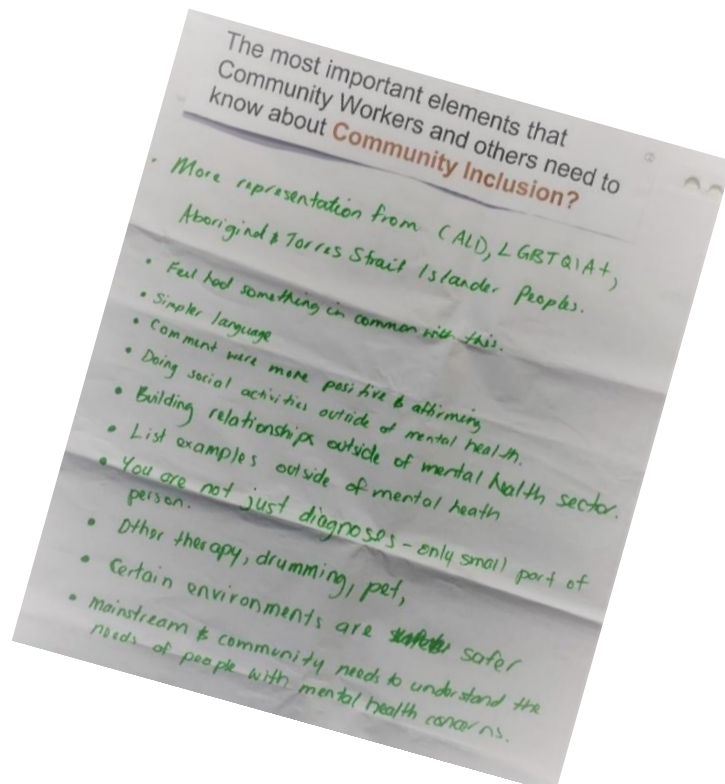 The most important elements that
Community Workers and others need to
know about Community Inclusion?
• More representation from CALD, LGBTQIA+,
Aboriginal & Torres Strait Islander Peoples.
• Feel had something in common with this.
• Simpler language
• Comment were more positive & affirming
• Doing social activities outside of mental health.
• Building relationships outside of mental health sector.
• List examples outside of mental heath
• You are not just diagnoses - only small part of
person.
• Other therapy, drumming, pet,
• Certain environments are safer
• mainstream & community needs to understand the
needs of people with mental health concerns.